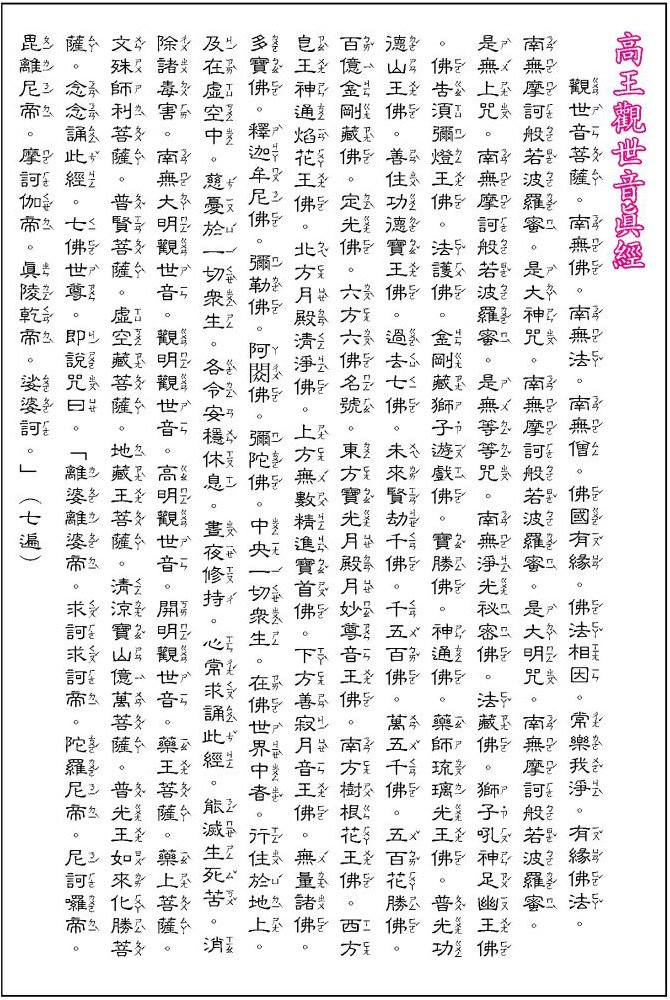 高王觀世音真經
觀世音菩薩。南無佛。南無法。南無僧。佛國有緣。佛法相因。常樂我淨。有緣佛法。
南無摩訶般若波羅蜜。是大神咒。南無摩訶般若波羅蜜。是大明咒。南無摩訶般若波羅蜜。
是無上咒。南無摩訶般若波羅蜜。是無等咒。南無淨光祕密佛。法藏佛。獅子吼神足幽王佛
。佛告須彌燈王佛。法護佛。金剛藏獅子遊戲佛。寶勝佛。神通佛。藥師琉璃光王佛。普光功
德山王佛。善住功德寶王佛。過去七佛。未來賢劫千佛。千五百佛。萬五千佛。五百花勝佛。
百億金剛藏佛。定光佛。六方六佛名號。東方寶光月殿月妙尊音王佛。南方樹根花王佛。西方
皂王神通焰花王佛。北方月殿清淨佛。上方無數精進寶首佛。下方善寂月音王佛。無量諸佛。
多寶佛。釋迦牟尼佛。彌勒佛。阿閦佛。彌陀佛。中央一切眾生。在佛世界中者。行住於地上。
及在虛空中。慈憂於一切眾生。各令安穩休息。晝夜修持。心常求誦此經。能滅生死苦。消
除諸毒害。南無大明觀世音。觀明觀世音。高明觀世音。開明觀世音。藥王菩薩。藥上菩薩。
文殊師利菩薩。普賢菩薩。虛空藏菩薩。地藏王菩薩。清涼寶山億萬菩薩。普光王如來化勝菩
薩。念念誦此經。七佛世尊。即說咒曰。「離婆離婆帝。求訶求訶帝。陀羅尼帝。尼訶囉帝。
毘離尼帝。摩訶伽帝。真陵乾帝。娑婆訶。」（七遍）